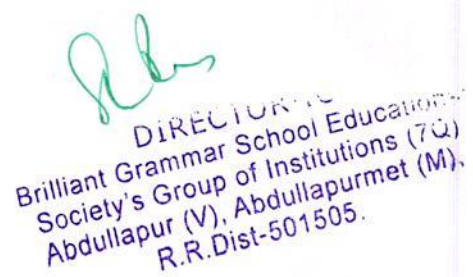 DIRECTOR
Brilliant Grammar School Educational
Society's Group of Institutions (7Q)
Abdullapur (V), Abdullapurmet (M),
R.R.Dist-501505.